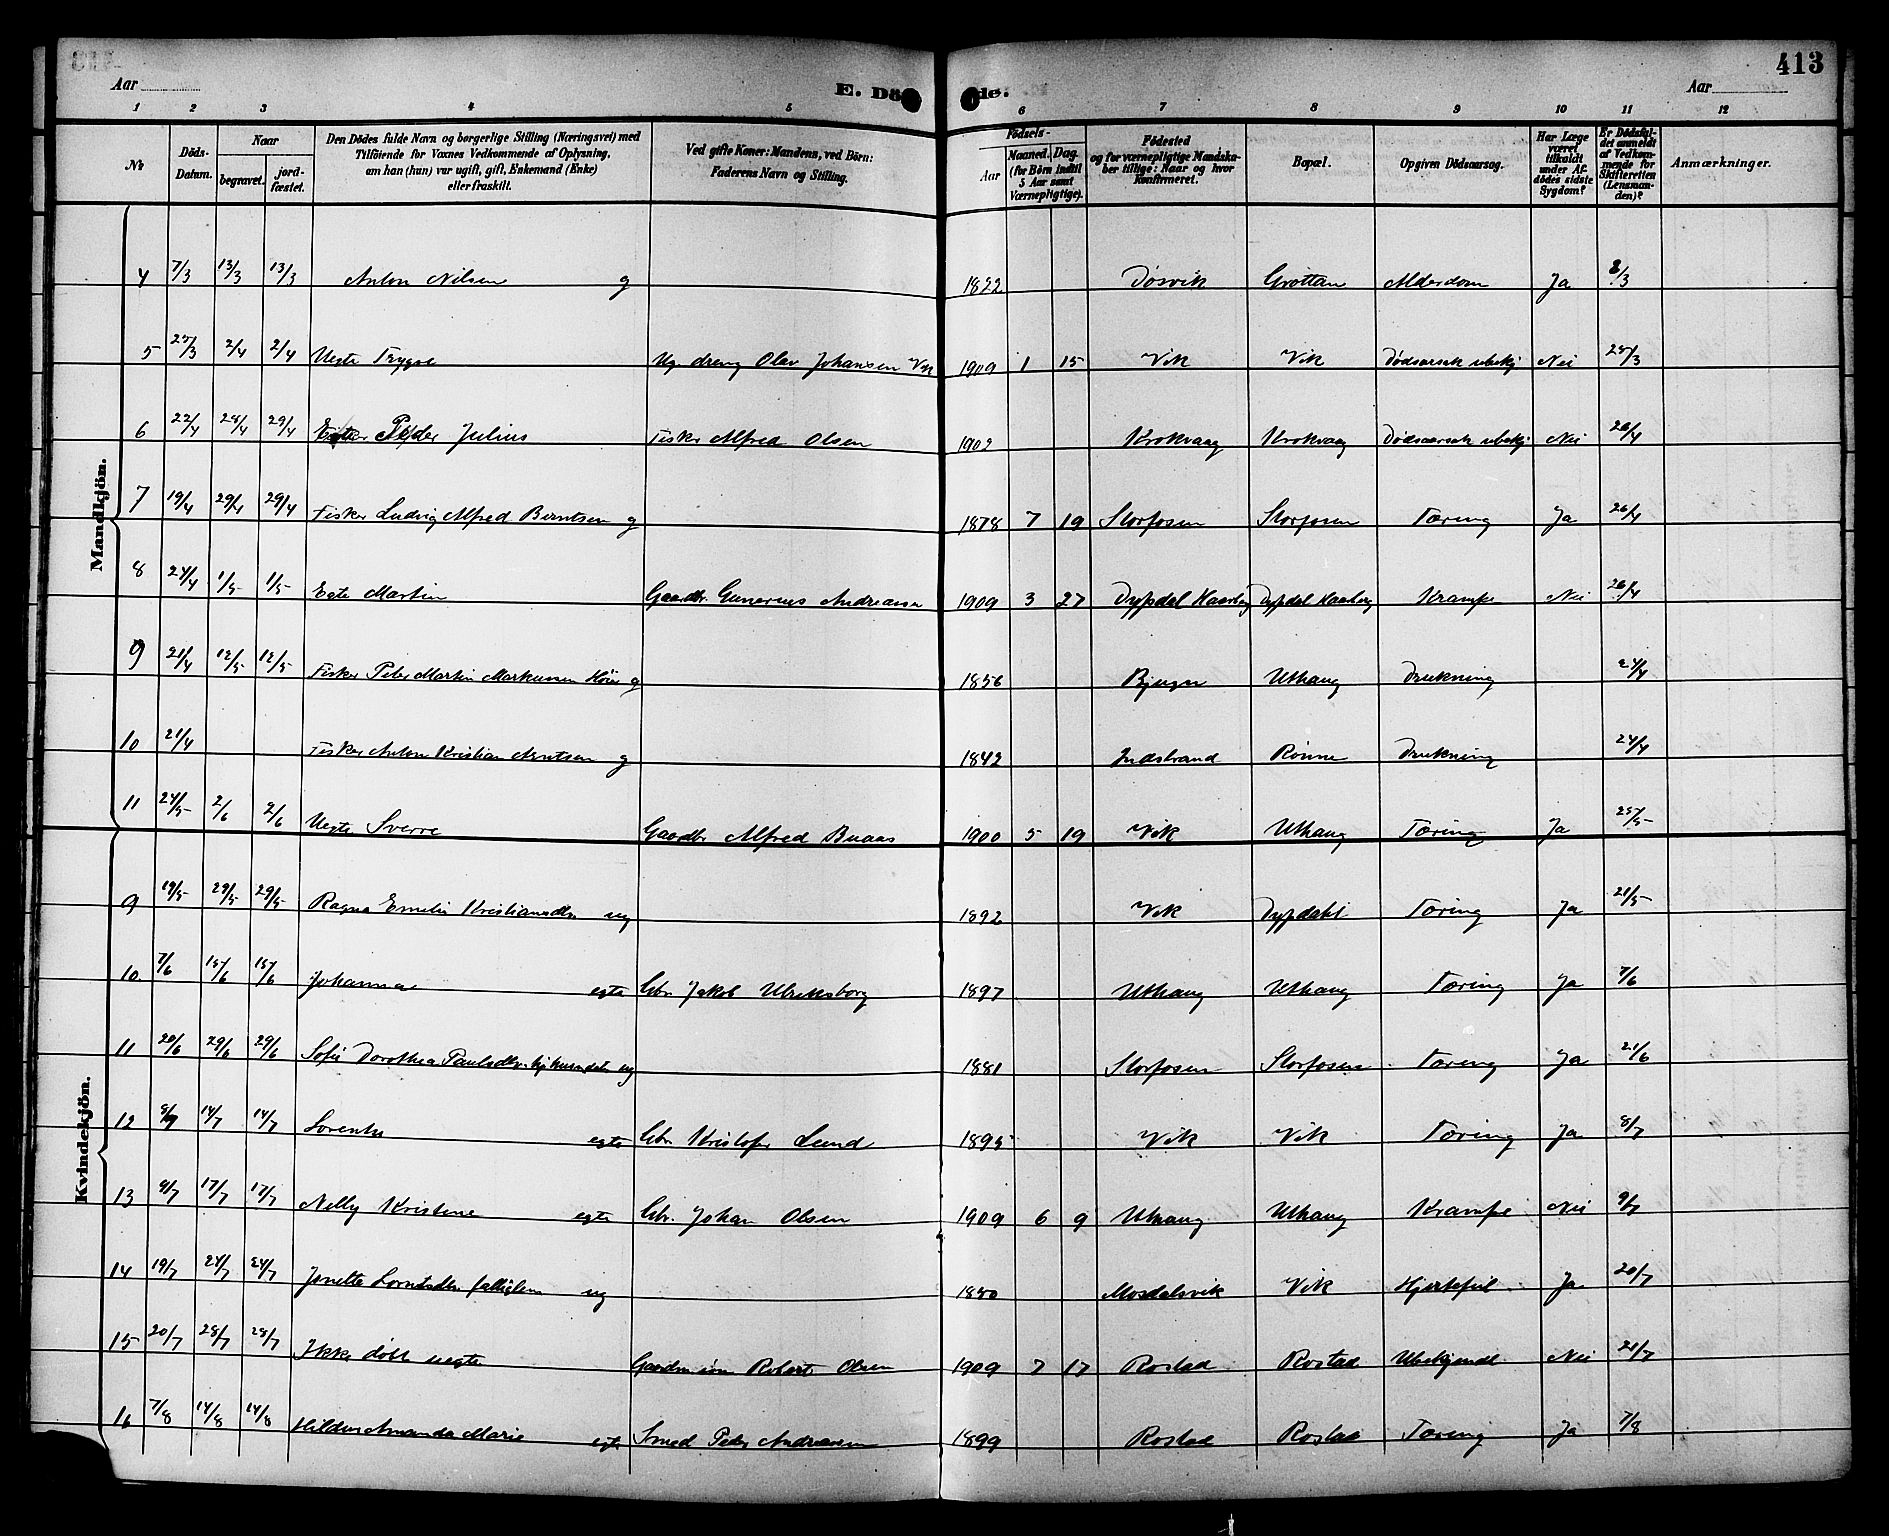 413
Aar
E. Döde.
Aar
1 2 3 4 5 6 7 8 9 10 11 12
No
Döds-Datum.
Naar
begravet. jordfæstet.
Den Dødes fulde Navn og borgerlige Stilling (Næringsvei) med
Tilføiende for Voxnes Vedkommende af Oplysning,
om han (hun) var ugift, gift, Enkemand (Enke)
eller fraskilt.
Ved gifte Koner: Mandens, ved Börn:
Faderens Navn og Stilling.
Födsels-
Aar
Maaned. Dag.
(for Børn indtil
5 Aar samt
Værnepligtige).
Födested
og for værnepligtige Mandska-
ber tillige: Naar og hvor
Konfirmeret.
Bopæl.
Opgiven Dödsaarsag.
Har Læge
været
tilkaldt
under Af-
dødes sidste
Sygdom?
Er Dødsfal-
det anmeldt
af Vedkom-
mende for
Skifteretten
(Lensman-
den)?
Anmærkninger.
Mandkjön.
4 7/3 13/3 13/3 Anton Nilsen g 1822 Døsvik Grøttan Alderdom Ja 8/3
5 25/3 2/4 2/4 Uegte Trygve Ug. dreng Olav Johansen Vik 1909 1 15 Vik Vik Dødsaarsak ubekj Nei 25/3
6 22/4 29/4 29/4 Peder Julius Fisker Alfred Olsen 1902 Krokvaag Krokvaag Dødsaarsak ubekj Nei 26/4
7 19/4 29/4 29/4 Fisker Ludvig Alfred Berntsen g 1878 7 19 Storfosen Storfosen Tæring Ja 26/4
8 24/4 1/5 1/5 Egte Martin Gaardbr. Gunerius Andreasen 1909 3 27 Dypdal Haarberg Dypdal Haarberg Krampe Nei 26/4
9 21/4 12/5 12/5 Fisker Peter Martin Markussen Høie g 1856 Bjugn Uthaug Drukning 24/4
10 21/4 Fisker Anton Kristian Arntsen g 1842 Indstrand Rønne Drukning 24/4
11 24/5 2/6 2/6 Uegte Sverre Gaardbr Alfred Buaas 1900 5 19 Vik Uthaug Tæring Ja 25/5
Kvindekjön.
9 19/5 29/5 29/5 Ragna Emelie Kristiansdtr ug 1892 Vik Dypdahl Tæring Ja 21/5
10 7/6 15/6 15/6 Johanna egte Gbr. Jakob Ulriksborg 1897 Uthaug Uthaug Tæring Ja 7/6
11 20/6 29/6 29/6 Sofie Dorothea Paulsdtr. ug 1881 Storfosen Storfosen Tæring Ja 21/6
12 14/7 14/7 Lorentse egte Gbr. Kristofer Lund 1895 Vik Vik Tæring Ja 8/7
13 9/7 17/7 17/7 Nelly Kristine egte Gbr. Johan Olsen 1909 6 9 Uthaug Uthaug Krampe Nei 9/7
14 19/7 24/7 24/7 Jonette Lorntsdtr fattiglem ug 1850 Mosdalsvik Vik Hjertefeil Ja 20/7
15 20/7 28/7 28/7 Ikke døbt uegte Gaardm. søn Robert Olsen 1909 7 17 Rostad Rostad Ubekjendt Nei 21/7
16 7/8 14/8 14/8 Hildur Amanda Marie egte Smed Peter Andreasen 1899 Rostad Rostad Tæring Ja 7/8